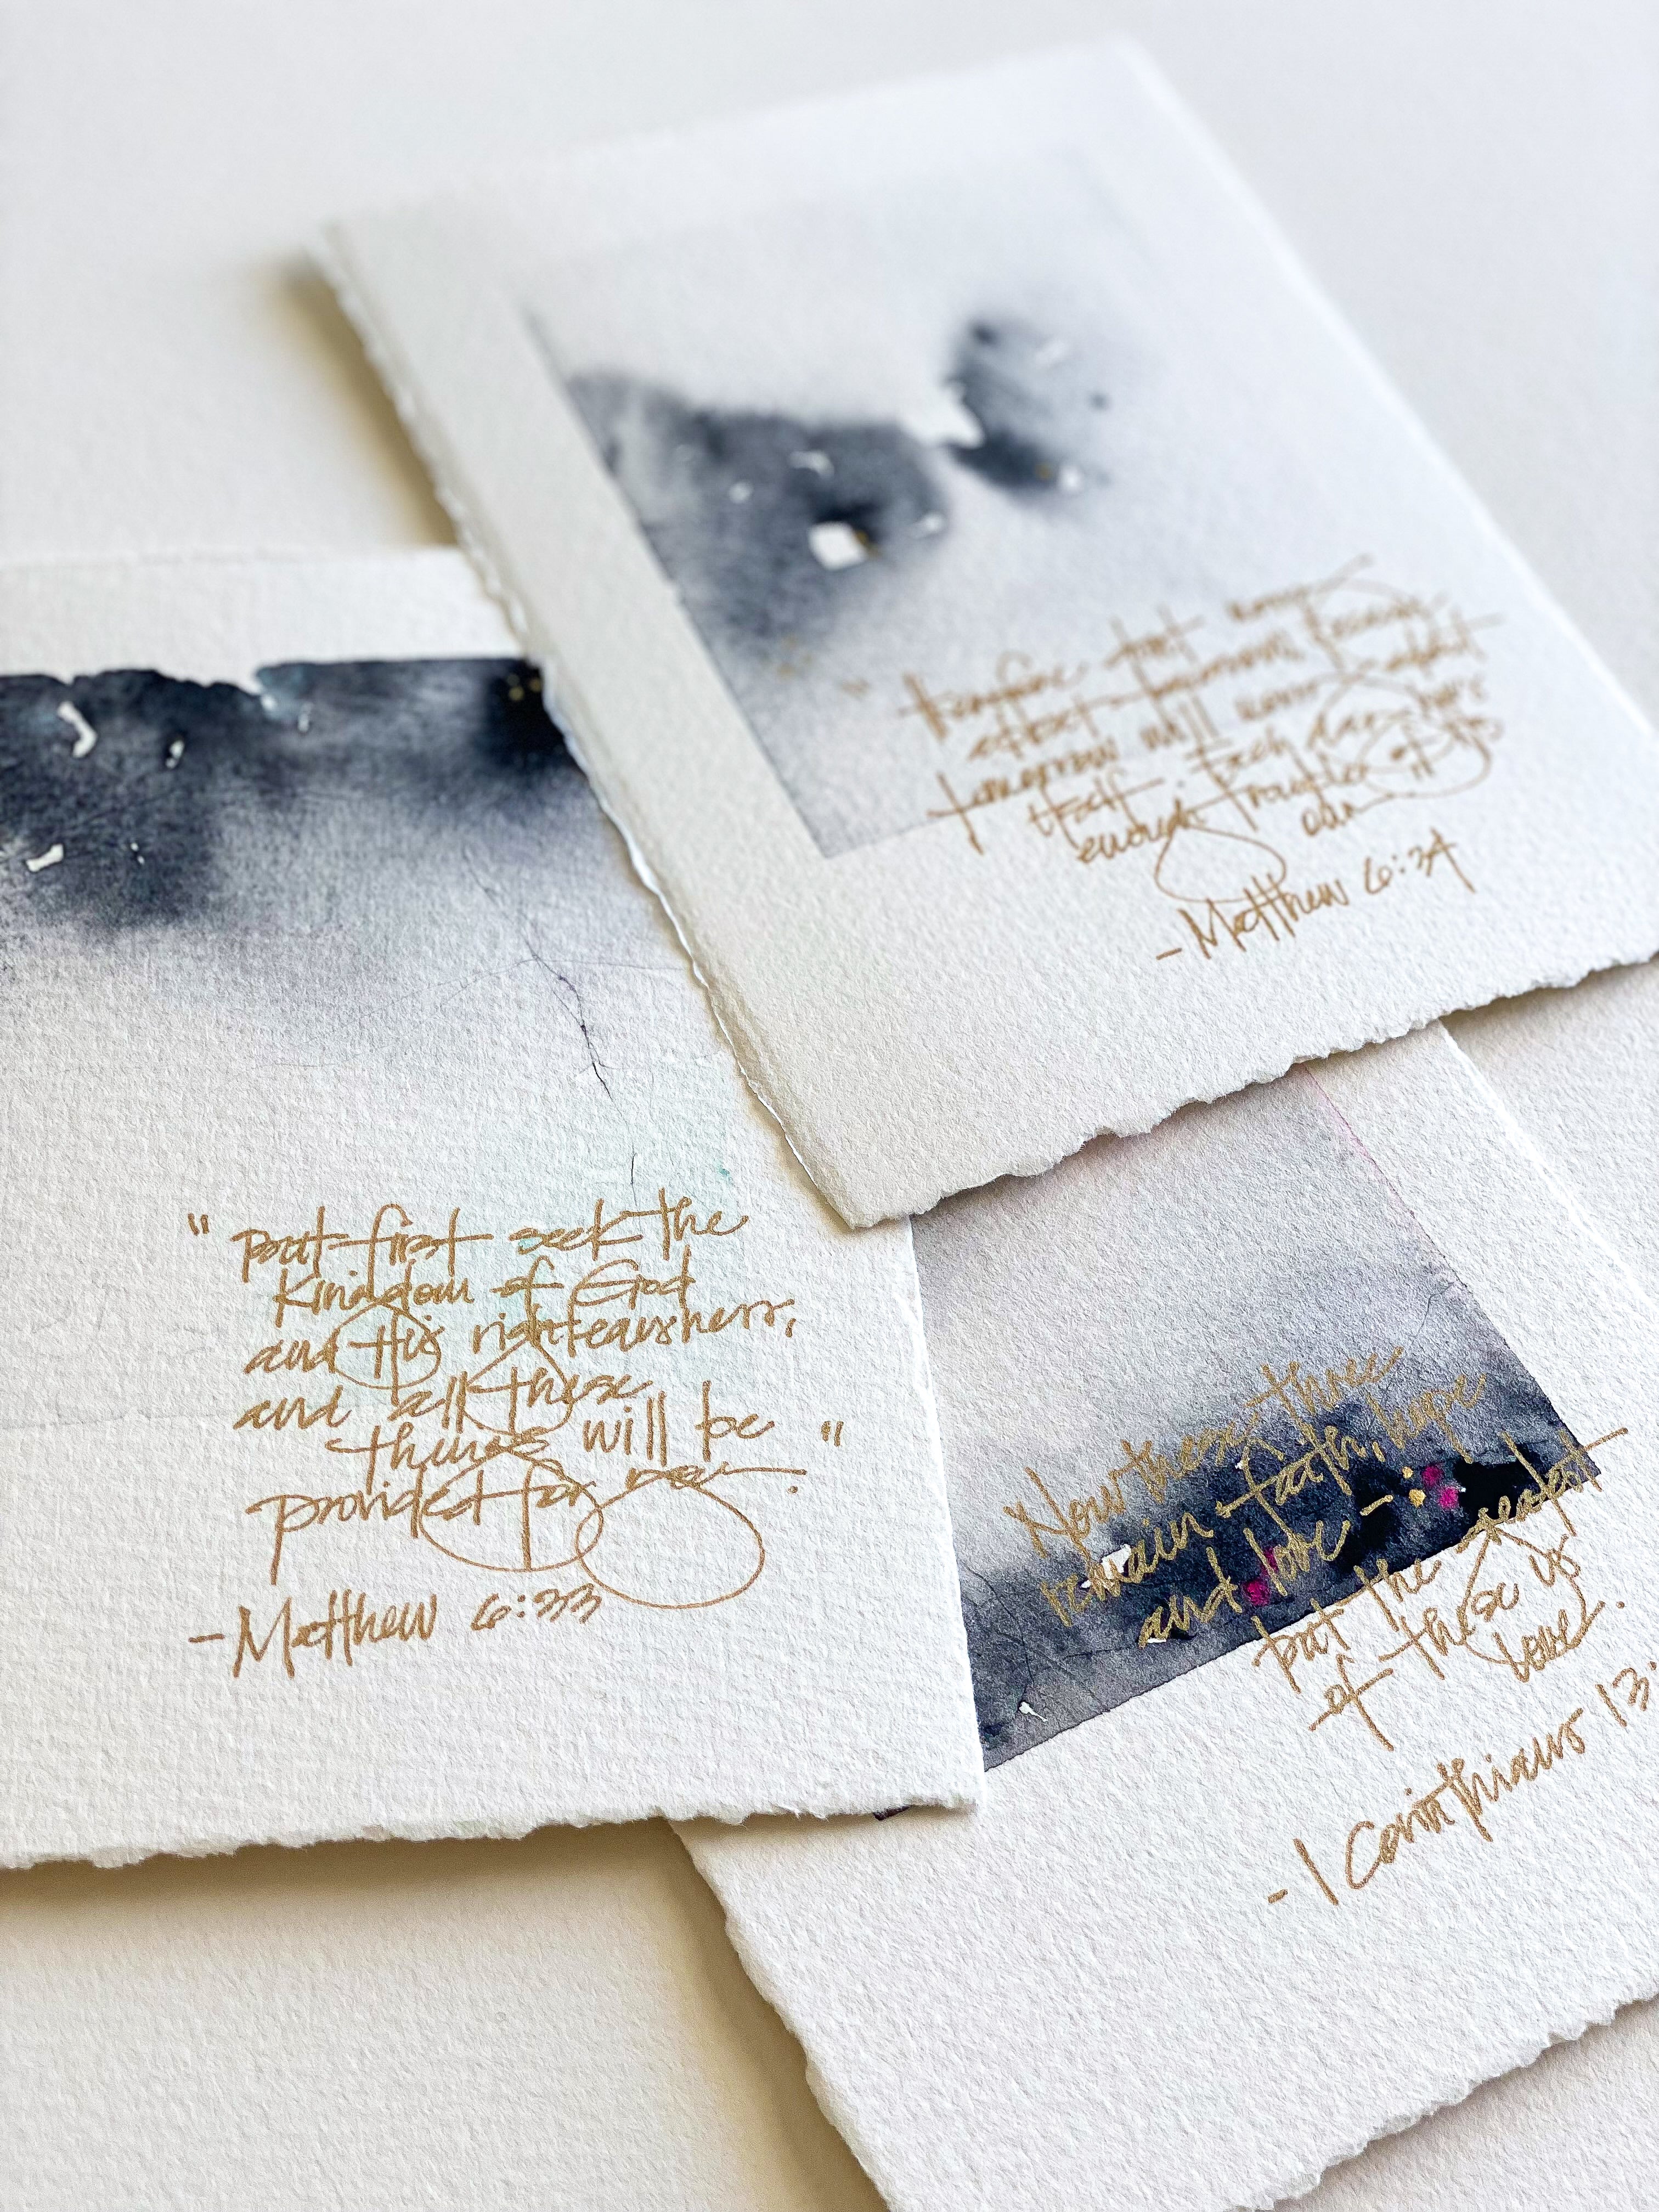 "Therefore do not worry
about tomorrow, because
tomorrow will worry about
itself. Each day has
enough trouble of its
own
-Matthew 6:34
"But first seek the
kingdom of God
and His righteousness,
and all these
things will be
provided for you."
-Matthew 6:33
"Now these three
remain - faith, hope
and love -
but the greatest
of these is
love.
-1 Corinthians 13: